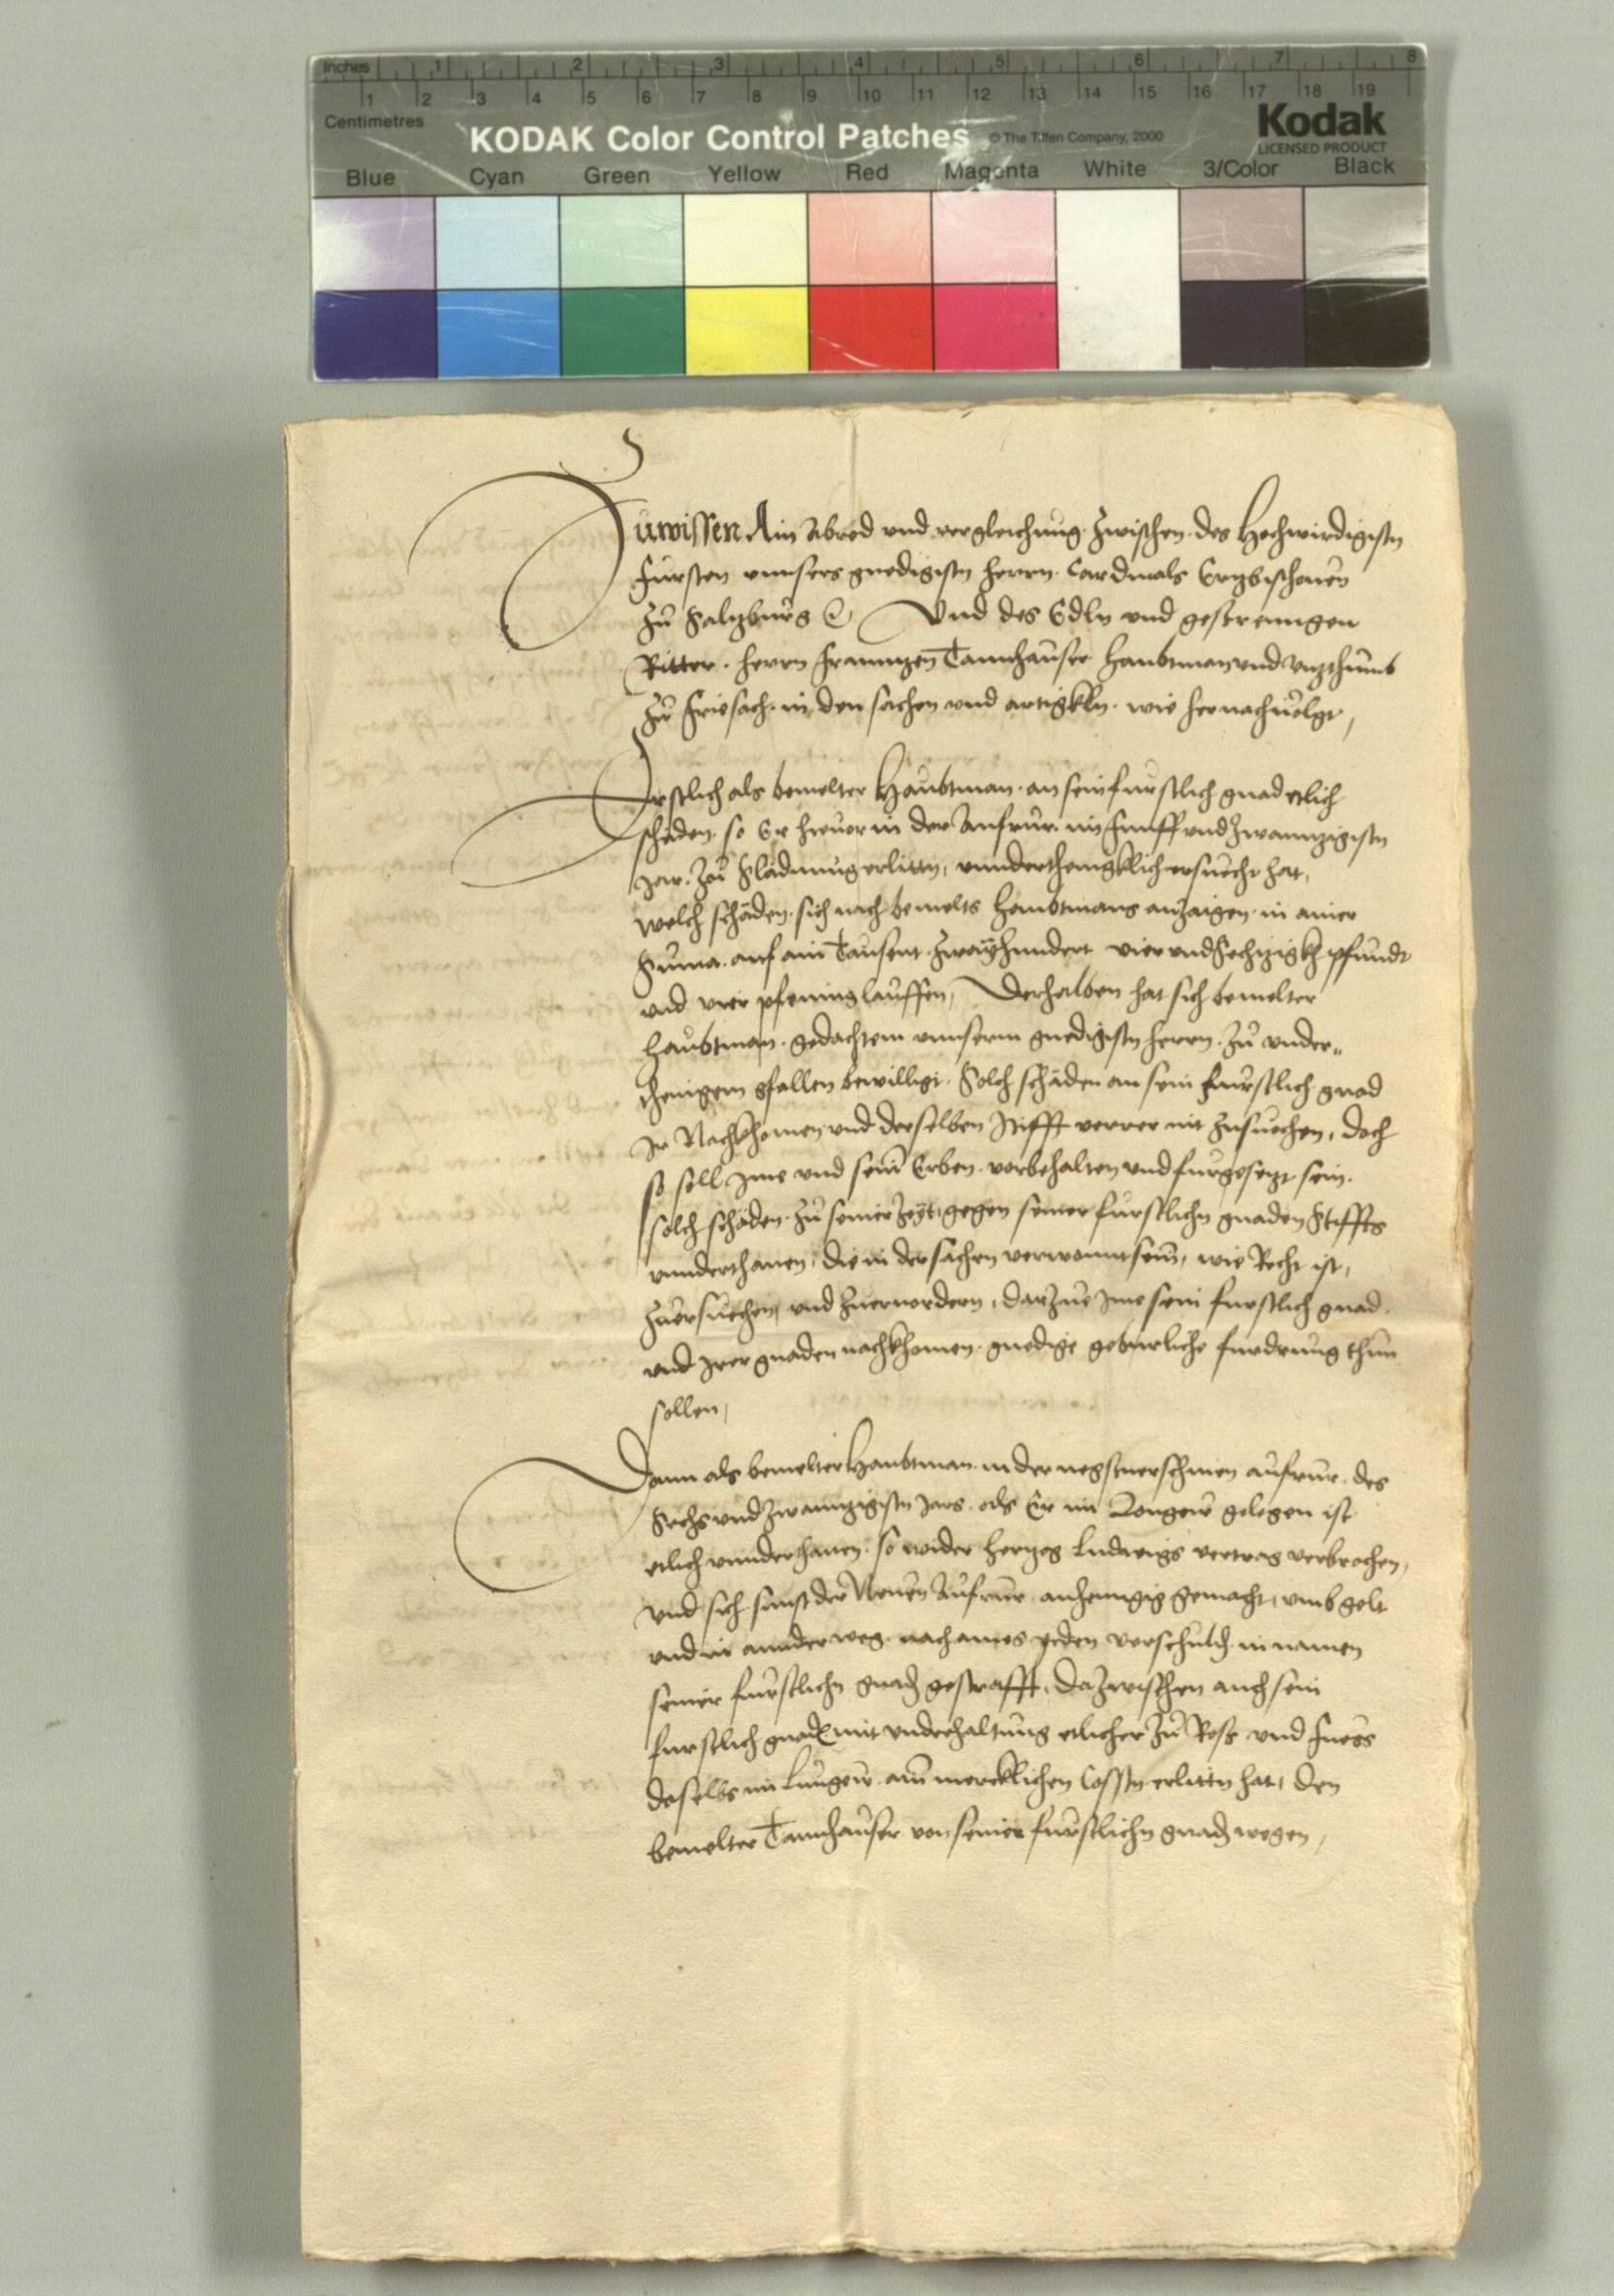 Inches 1 2 3 4 5 6 7 8
1 2 3 4 5 6 7 8 9 10 11 12 13 14 15 16 17 18 19
Centimetres
KODAK Color Control Patches © The Tiffen Company, 2000 Kodak
LICENSED PRODUCT
Blue Cyan Green Yellow Red Magenta White 3/Color Black
Zuwissen Ain Abred vnd vergleichung zwischen des Hochwirdigisten
Fürsten vnnsers gnedigisten herrn Cardinals Ertzbischouen
zu Saltzburg Vnd des Edln vnd gestrenngen
Ritter herrn Franntzen Tannhauser Haubtman vnd vitzthumb
zu Friesach in den sachen vnd artigkln wie hernachuolgt,
Erstlich als bemelter Haubtman an sein furstlich gnad etlich
schäden so Er heuor in der Aufrur im Funff vnd zwaintzigisten
Jar zu erlitten, vnnderthenigklich ersuecht hat,
welch schäden sich nach bemelts Haubtmans anzaigen in ainer
Suma auf ain Tausent zwayhundert vier vnd Sechtzigkh pfundt
vnd vier pfening lauffen, Derhalben hat sich bemelter
Haubtman gedachtem vnnserm gnedigisten herrn zu vnder„
thenigem gfallen bewilligt Solch schäden an sein furstlich gnad
Ir Nachkhomen vnd derselben Stifft verrer nit zusuechen, doch
so soll Ime vnd sein Erben vorbehalten vnd furgesetzt sein
solch schäden zu seiner Zeyt gegen seiner furstlichn gnaden Stiffts
vnnderthanen, die in der sachen verwonnt sein, wie Recht ist,
zuersuechen, vnd zueruordern, darzue Ime sein furstlich gnad
vnd Irer gnaden nachkhomen gnedige geburliche furdrung thun
sollen,
Dann als bemelter Haubtman in der negstuerschinen aufrur des
Sechs vnd zwaintzigisten Jars als Er im Longew gelegen ist
etlich vnnderthanen so wider Hertzog Ludwigs vertrag verbrochen,
vnd sich sunst der Newen Aufrur anhenngig gemacht, vmb gelt
vnd in annder weg nach aines yeden verschuld in namen
seiner furstlichn gnad gestrafft, Dazwischen auch sein
furstlich gnad mit vnderhaltung etlicher zu Ross vnd Fuess
daselbs im Lungew ain mercklichen Cossten erlitten hat, den
bemelter Tannhauser von seiner furstlichn gnad wegen,